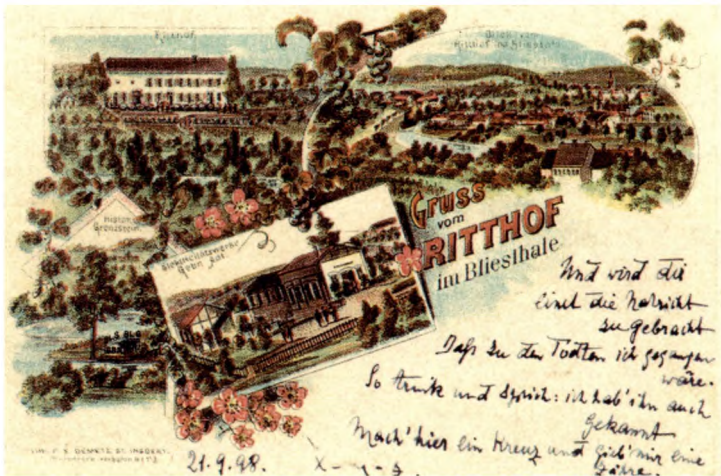 Ritthof
Blick vom
Ritthof ins Bliesthal
Histor.
Grenzstein
Elektricitätswerke
Gebr.
Gruss
vom
RITTHOF
im Bliesthale
Und wird dir
einst die Nachricht
zu gebracht
Daß zu den Todten ich gegangen
wäre.
So trink und sprich: ich hab' ihn auch
gekannt
Mach' hier ein Kreuz und gieb' mir eine
Zähre.
21.9.98.
DEMETZ, ST. INGBERT.